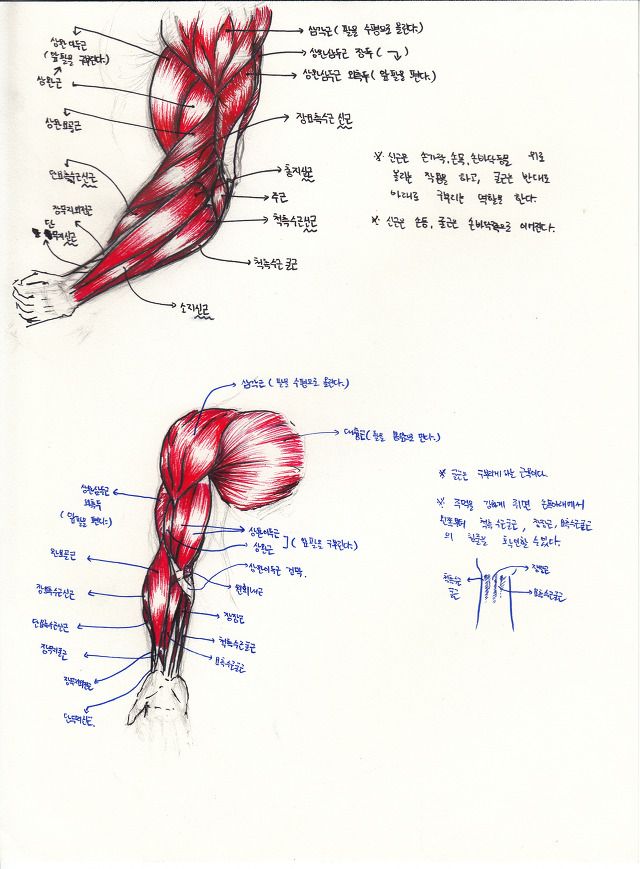 삼각근 (팔을 수평으로 올린다.)
상완이두근
(앞팔을 구부린다.)
상완근
상완삼두근 장두 ( )
상완삼두근 외측두 (앞팔을 편다.)
상완요골근
장요측수근신근
단요측수근신근
총지신근
장무지외전근
주근
단
무지신근
척측수근신근
척측수근굴근
소지신근
※ 신근은 손가락, 손목, 손바닥등을 위로
올리는 작용을 하고, 굴근은 반대로
아래로 구부리는 역할을 한다.
※ 신근은 손등, 굴근은 손바닥쪽으로 이어진다.
삼각근 (팔을 수평으로 올린다.)
대흉근 (팔을 몸쪽으로 민다.)
상완삼두근
외측두
(앞팔을 편다.)
상완이두근
상완근
] (앞팔을 구부린다)
상완이두근 건막.
완요골근
원회내근
장요측수근신근
장장근
단요측수근신근
척측수근굴근
요측수근굴근
장무지굴근
장무지외전근
단무지신근.
※ 굴근은 구부리게 하는 근육이다.
※ 주먹을 강하게 쥐면 손목아래에서
왼쪽부터 척측수근굴근, 장장근, 요측수근굴근
의 힘줄을 확인할 수 있다.
척측수근
굴근
장장근
요측수근굴근